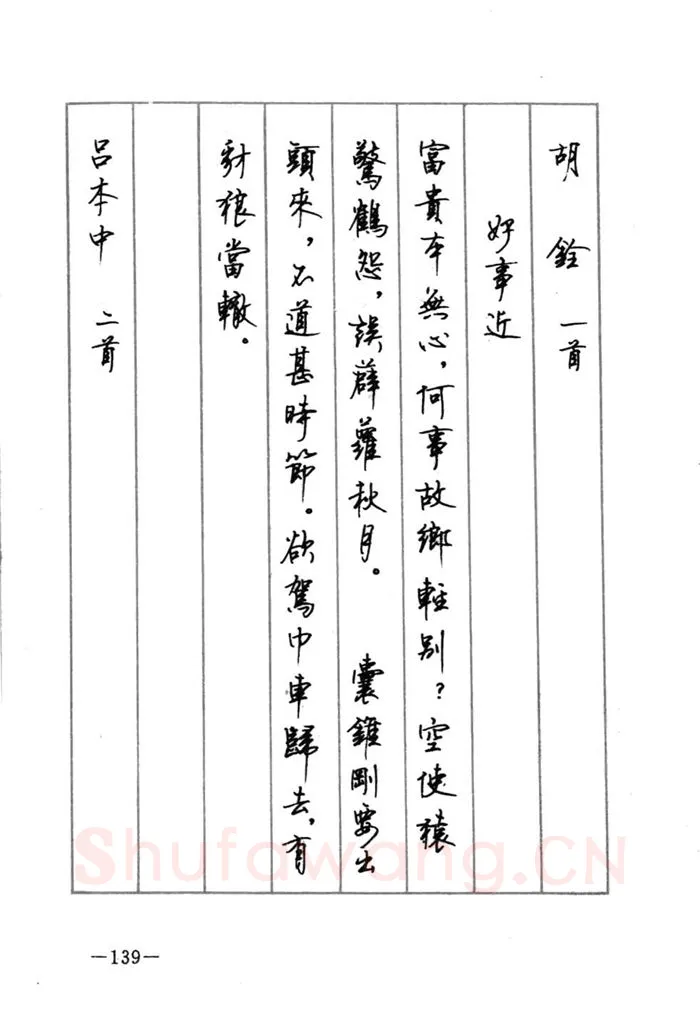 胡銓 一首
好事近
富貴本無心，何事故鄉輕別？空使猿
驚鶴怨，誤薜蘿秋月。 囊錐剛要出
頭來，不道甚時節。欲駕巾車歸去，有
豺狼當轍。
呂本中 二首
—139—
Shufawang.CN